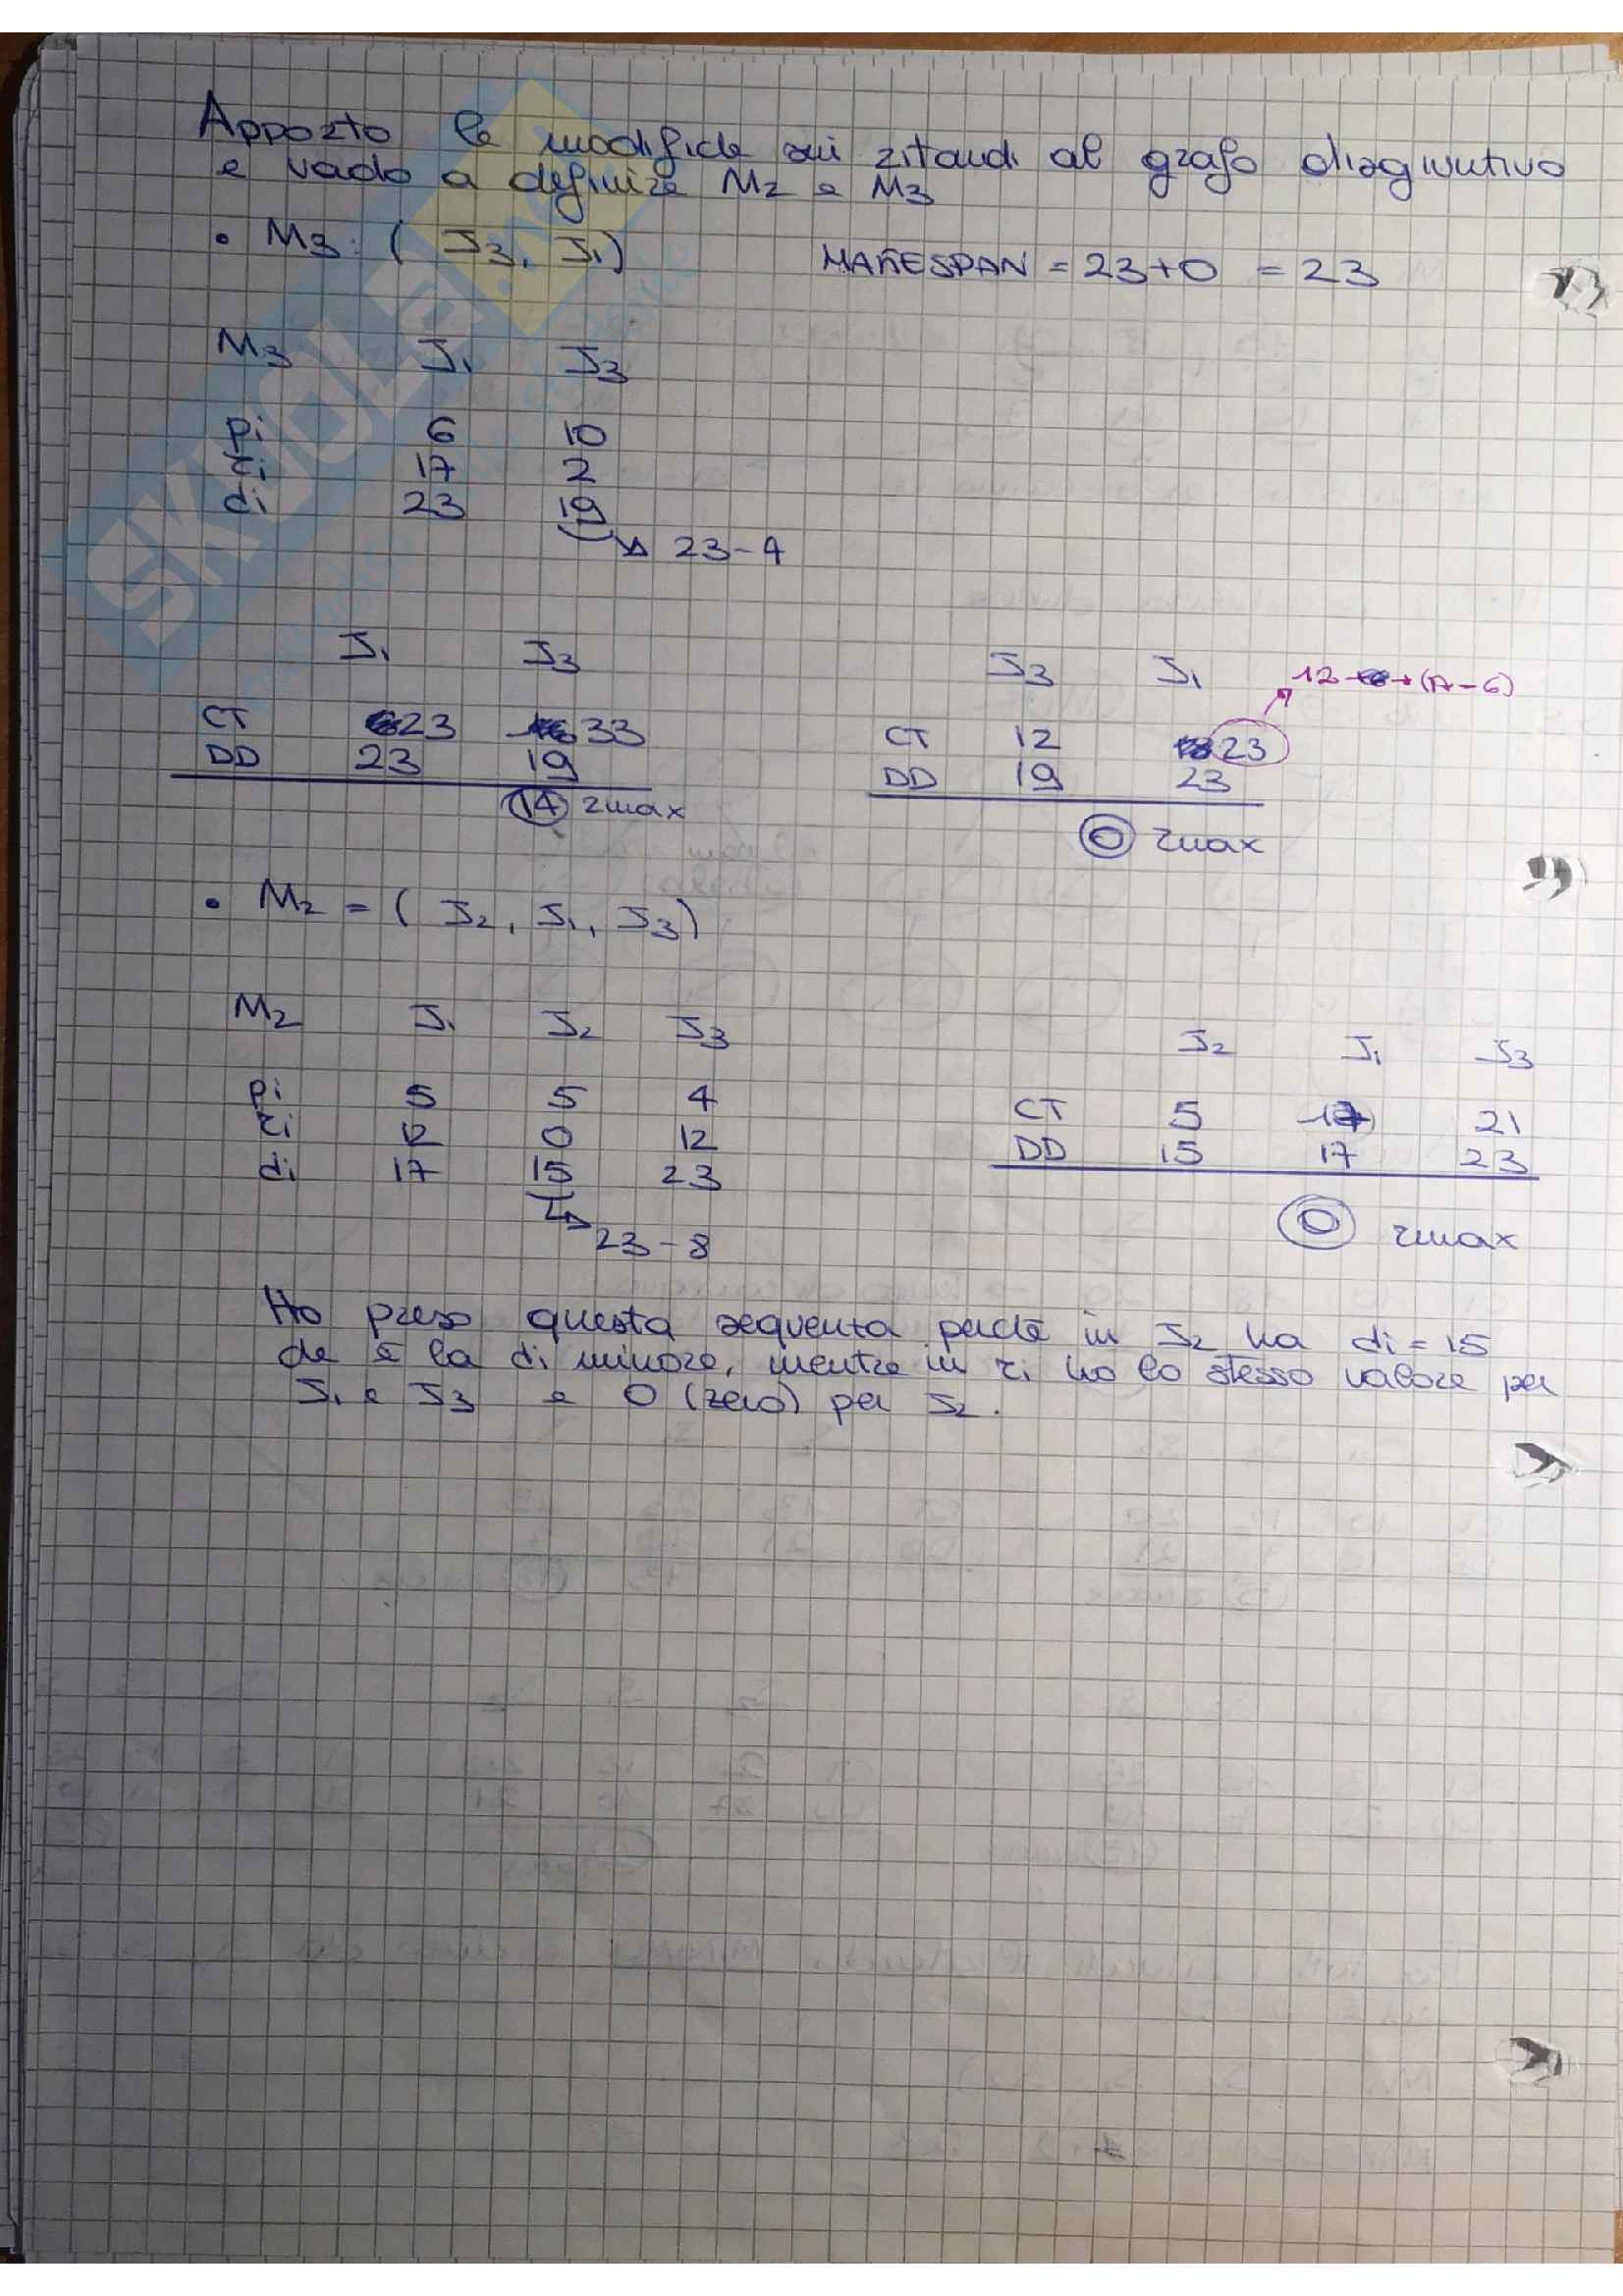 Apporto le modifiche sui ritardi al grafo disgiuntivo
e vado a definire M2 e M3
• M3: ( J3, J1) MAKESPAN = 23+0 = 23
M3 J1 J3
pi 6 10
ri 17 2
di 23 19
23-4
J1 J3
CT 23 33
DD 23 19
14 rmax
J3 J1 12 + (17-6)
CT 12 23
DD 19 23
0 rmax
• M2 = ( J2, J1, J3)
M2 J1 J2 J3
pi 5 5 4
ri 12 0 12
di 17 15 23
23-8
J2 J1 J3
CT 5 17 21
DD 15 17 23
0 rmax
Ho preso questa sequenza perché in J2 ha di = 15
che è la di minore, mentre in ri ho lo stesso valore per
J1 e J3 e 0 (zero) per J2.
SKUOLA.net